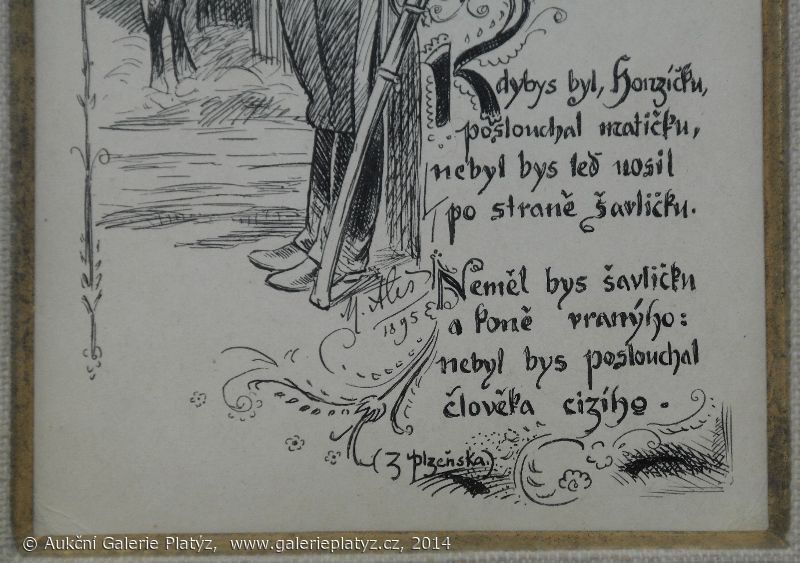 Kdybys byl, Honzíčku,
poslouchal matičku,
nebyl bys leď nosil
po straně šavličku.
Neměl bys šavličku
a koně vranýho:
nebyl bys poslouchal
člověka cizího.
M. Aleš
1895
(Z Plzeňska.)
© Aukční Galerie Platýz, www.galerieplatyz.cz, 2014